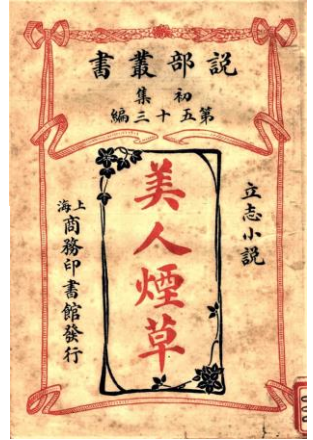 説部叢書
初集
第五十三編
立志小説
美人煙草
上海商務印書館發行